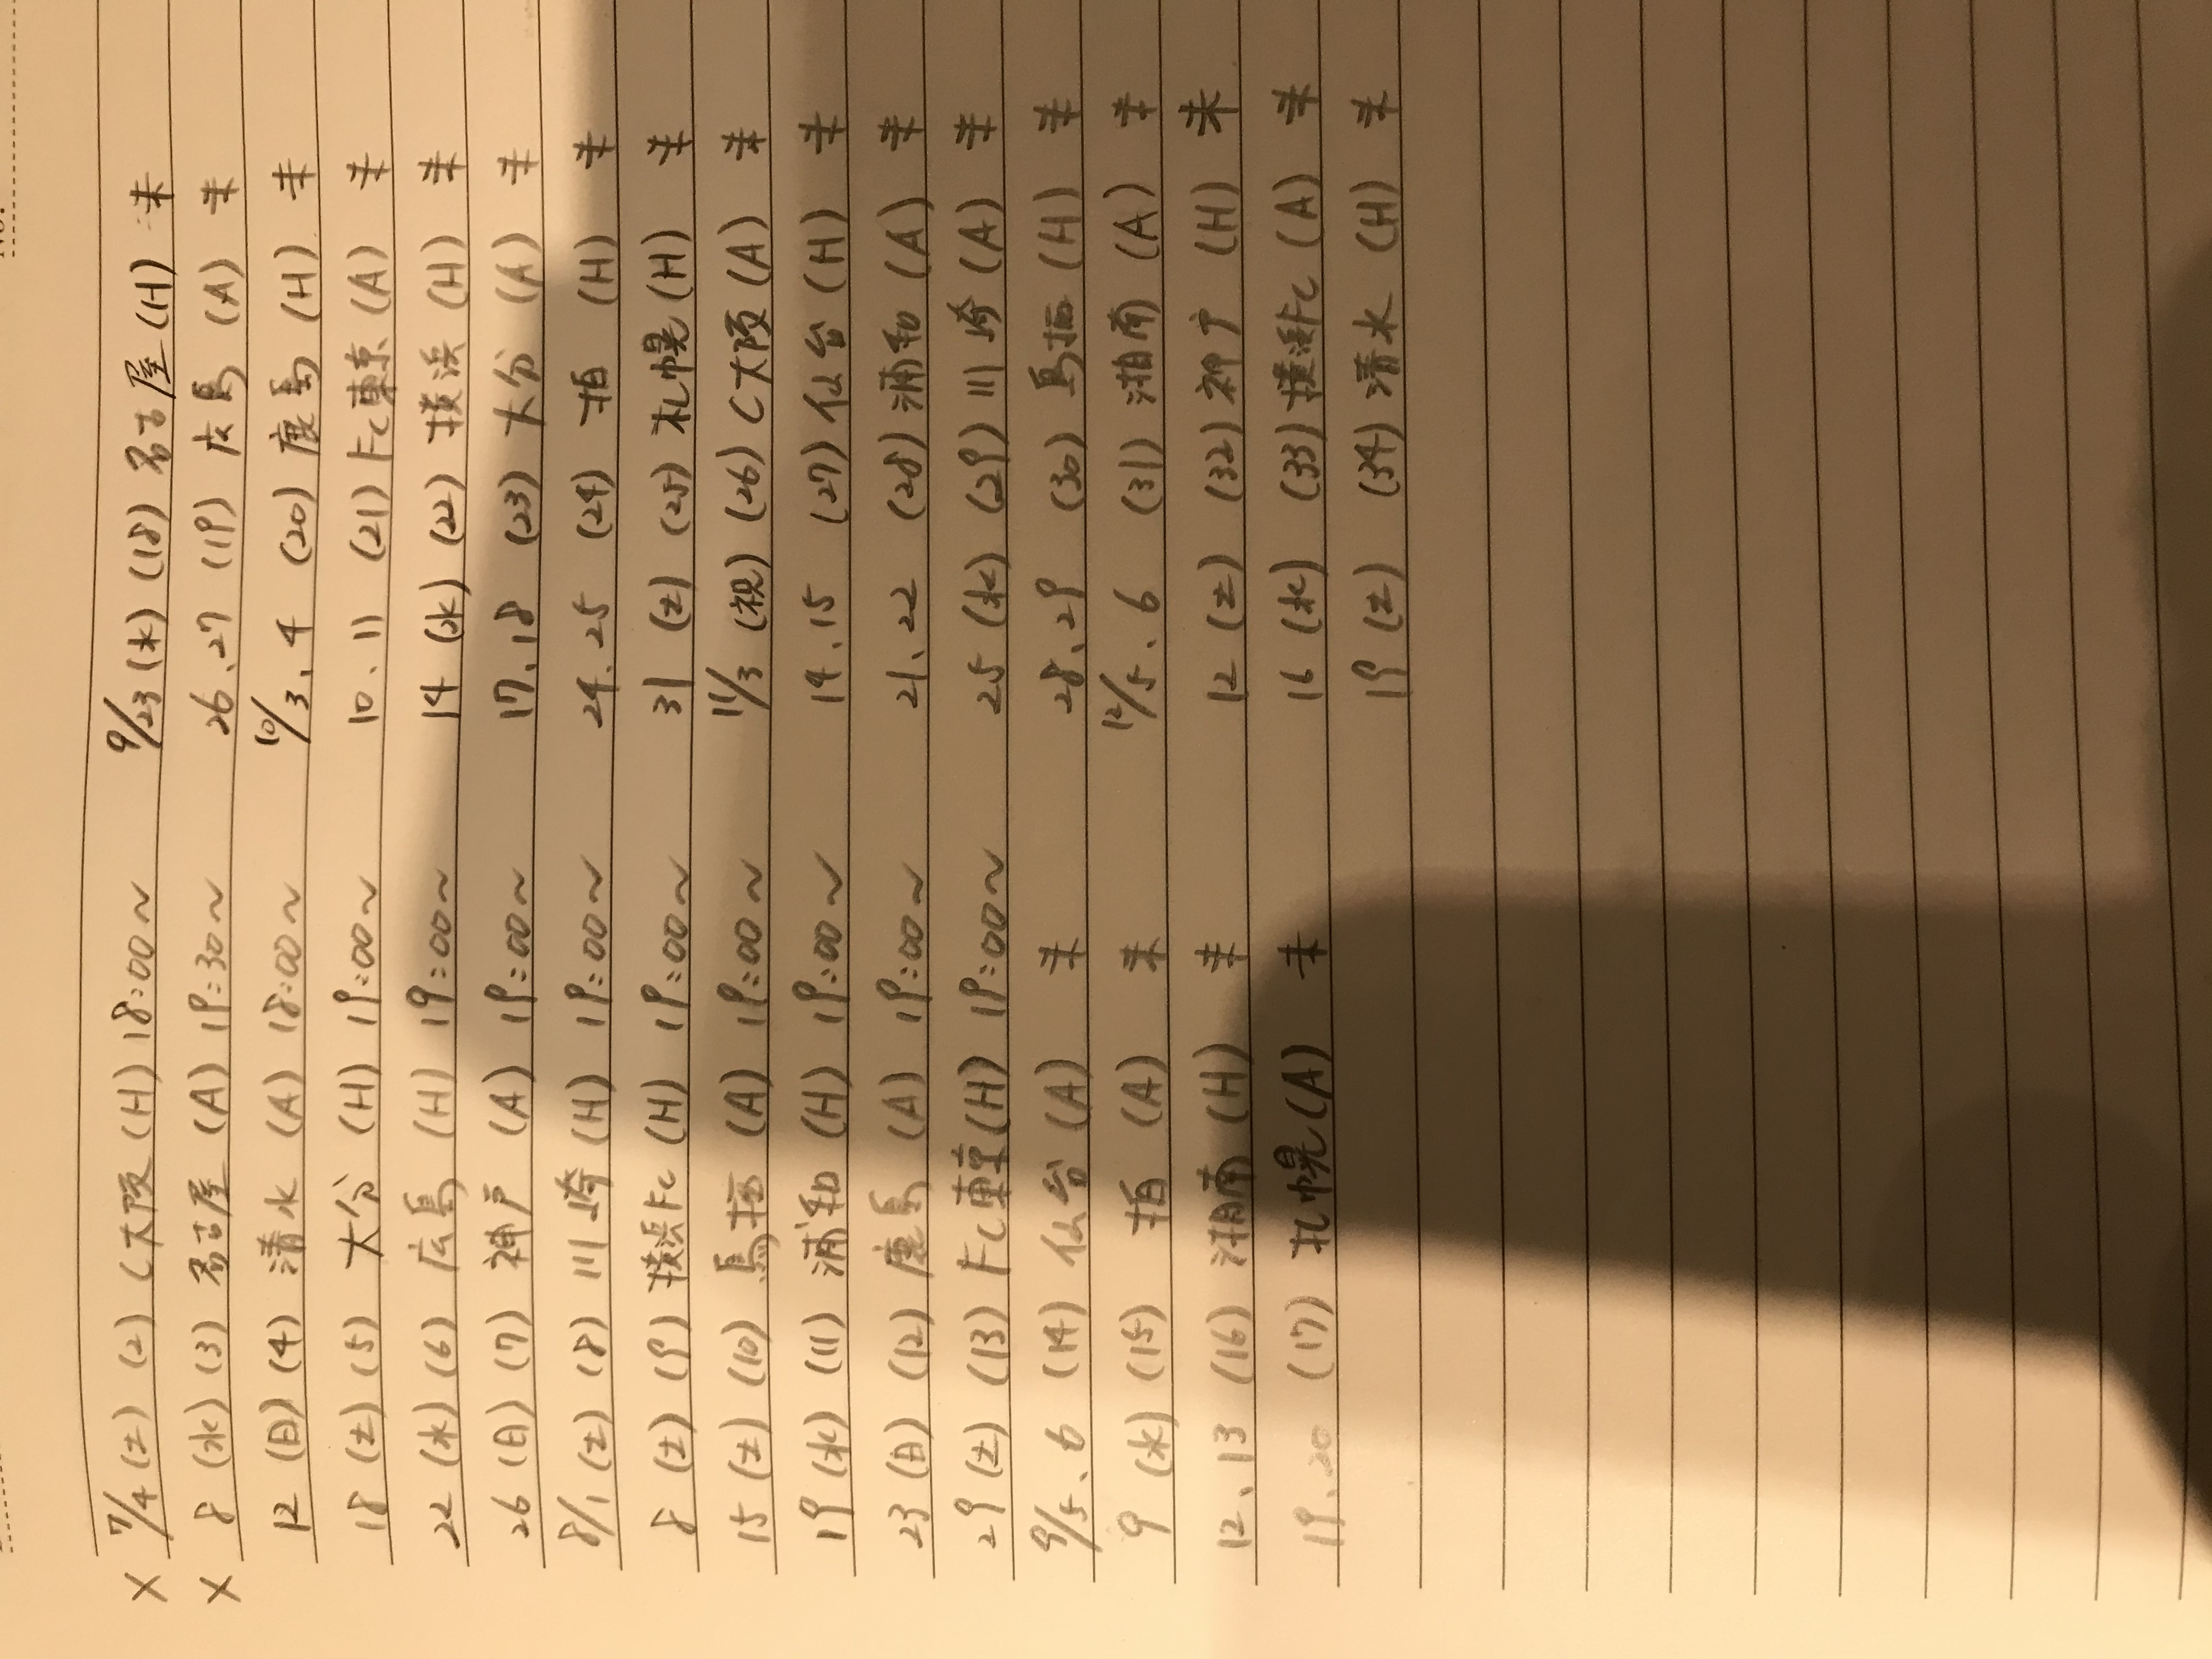 × 7/4 (土) (2) C大阪 (H) 18:00~
× 8 (水) (3) 名古屋 (A) 19:30~
12 (日) (4) 清水 (A) 18:00~
18 (土) (5) 大分 (H) 19:00~
22 (水) (6) 広島 (H) 19:00~
26 (日) (7) 神戸 (A) 19:00~
8/1 (土) (8) 川崎 (H) 19:00~
8 (土) (9) 横浜FC (H) 19:00~
15 (土) (10) 鳥栖 (A) 19:00~
19 (水) (11) 浦和 (H) 19:00~
23 (日) (12) 鹿島 (A) 19:00~
29 (土) (13) FC東京 (H) 19:00~
9/5、6 (14) 仙台 (A) 未
9 (水) (15) 柏 (A) 未
12、13 (16) 湘南 (H) 未
19、20 (17) 札幌 (A) 未
9/23 (水) (18) 名古屋 (H) 未
26、27 (19) 広島 (A) 未
10/3、4 (20) 鹿島 (H) 未
10、11 (21) FC東京 (A) 未
14 (水) (22) 横浜 (H) 未
17、18 (23) 大分 (A) 未
24、25 (24) 柏 (H) 未
31 (土) (25) 札幌 (H) 未
11/3 (祝) (26) C大阪 (A) 未
14、15 (27) 仙台 (H) 未
21、22 (28) 浦和 (A) 未
25 (水) (29) 川崎 (A) 未
28、29 (30) 鳥栖 (H) 未
12/5、6 (31) 湘南 (A) 未
12 (土) (32) 神戸 (H) 未
16 (水) (33) 横浜FC (A) 未
19 (土) (34) 清水 (H) 未